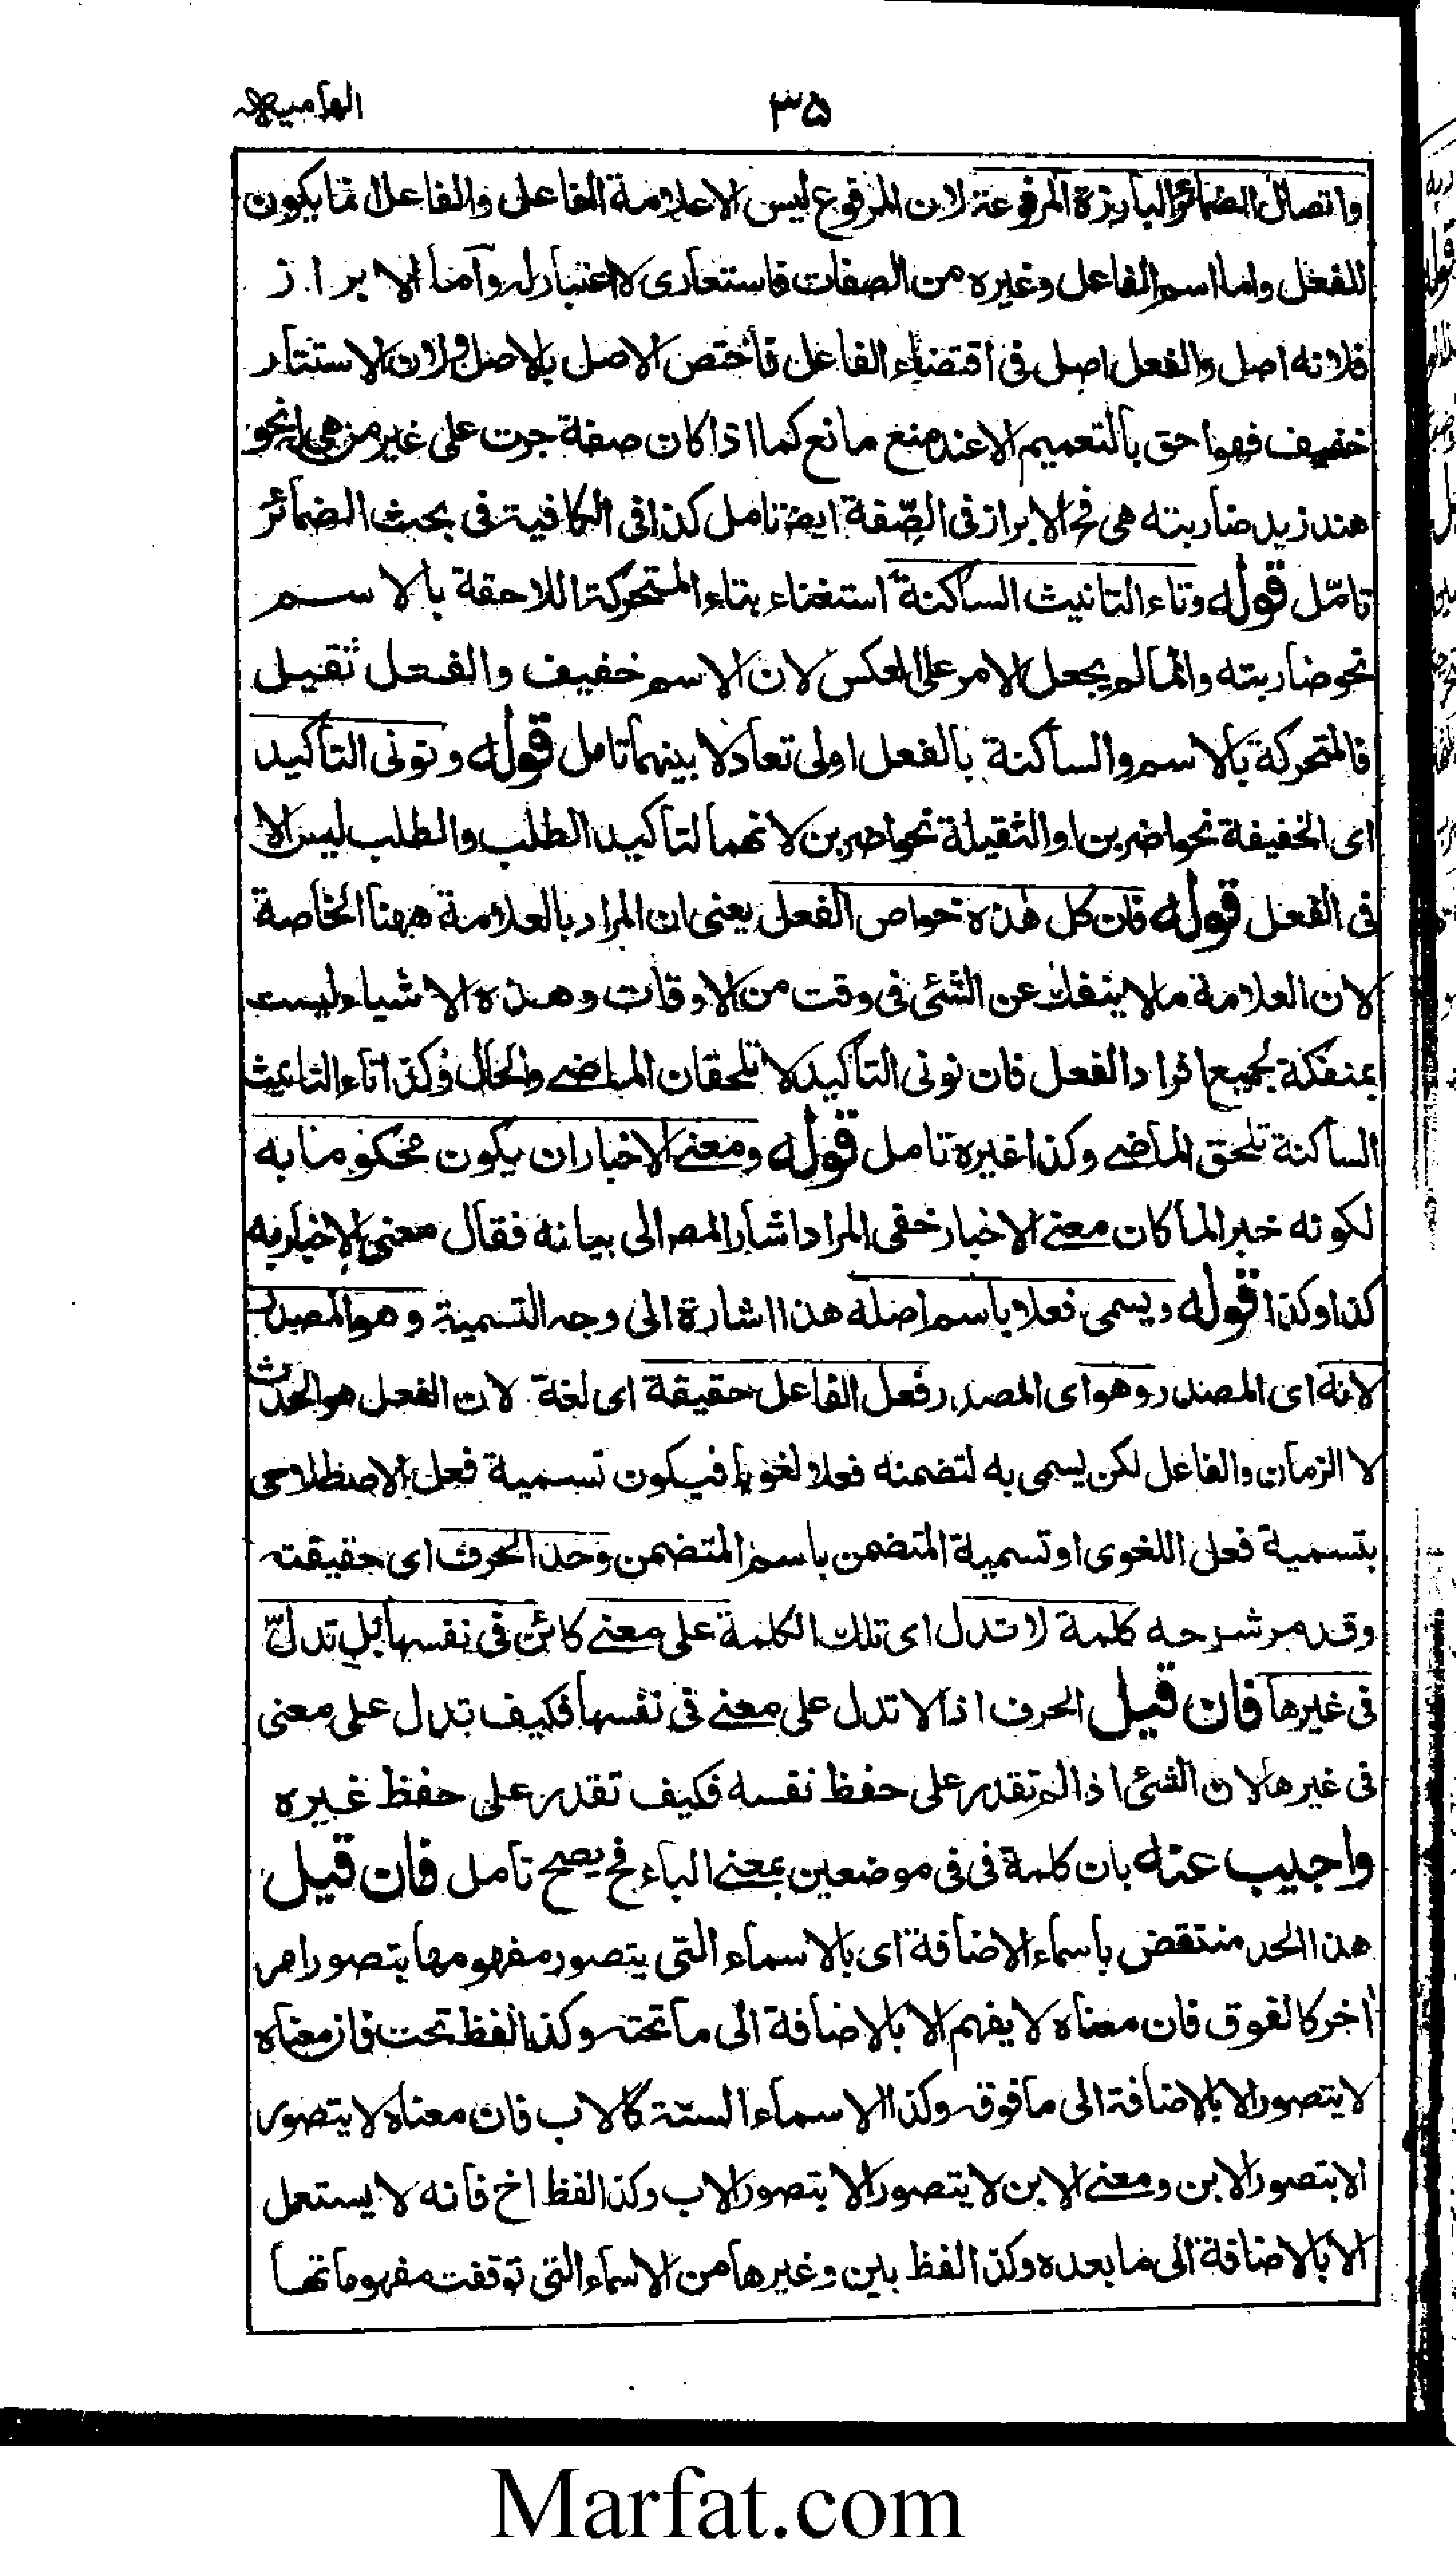 الهامیه
۳۵
واتصال الضمائر البارزة المرفوعة لان المرفوع ليس الا علامة الفاعل والفاعل انما يكون
للفعل واما اسم الفاعل وغيره من الصفات فاستعارى لا اعتبار له وآما الابراز
فلانه اصل والفعل اصل فى اقتضاء الفاعل فاختص الاصل بالاصل ولان الاستتار
خفيف فهو احق بالتعميم الا عند منع مانع كما اذا كان صفة جرت على غير من هى له نحو
هند زيد ضاربته هى فح الابراز فى الصّفة ايضۃ تامل كذا فى الكافية فى بحث الضمائر
تامّل قوله وتاء التانيث الساكنة استغناء بتاء المتحركة اللاحقة بالاسم
نحو ضاربته وانما لم يجعل الامر على العكس لان الاسم خفيف والفعل ثقيل
فالمتحركة بالاسم والساكنة بالفعل اولى تعادلا بينهما تامل قوله ونونى التاكيد
اى الخفيفة نحو اضربن او الثقيلة نحو اضربن لانهما لتاكيد الطلب والطلب ليس الا
فى الفعل قوله فان كل هذه خواص الفعل يعنى ان المراد بالعلامة ههنا الخاصة
لان العلامة ما لا ينفك عن الشئى فى وقت من الاوقات وهذه الاشياء ليست
بمنفكة لجميع افراد الفعل فان نونى التاكيد لا تلحقان الماضے والحال وكذا تاء التانيث
الساكنة تلحق الماضے وكذا غيره تامل قوله ومعنے الاخبار ان يكون محكوما به
لكونه خبر الما كان معنے الاخبار خفى المراد اشار المصر الى بيانه فقال معنى الاخبار به
كذا وكذا قوله ويسمى فعلا باسم اصله هذا اشارة الى وجه التسمية وهو المصدر
لانه اى المصدر وهو اى المصدر فعل الفاعل حقيقة اى لغة لان الفعل هو الحدث
لا الزمان والفاعل لكن يسمى به لتضمنه فعلا لغويا فيكون تسمية فعل الاصطلاحى
بتسمية فعل اللغوى او تسمية المتضمن باسم المتضمن وحد الحرف اى حقيقته
وقد مر شرحه كلمة لا تدل اى تلك الكلمة على معنے كائن فى نفسها بل تدلّ
فى غيرها فان قيل الحرف اذا لا تدل على معنے فى نفسها فكيف تدل على معنى
فى غيرها لان الشئى اذا لم تقدر على حفظ نفسه فكيف تقدر على حفظ غيره
واجيب عنه بان كلمة فى فى موضعين بمعنے الباء فح يصح تامل فان قيل
هذا الحد منتقض باسماء الاضافة اى بالاسماء التى يتصور مفهومها بتصور امر
اخر كالفوق فان معناه لا يفهم الا بالاضافة الى ما تحته وكذا لفظ تحت فان معناه
لا يتصور الا بالاضافة الى ما فوقه وكذا الاسماء الستة كالاب فان معناه لا يتصور
الا بتصور الابن ومعنے الابن لا يتصور الا بتصور الاب وكذا لفظ اخ فانه لا يستعمل
الا بالاضافة الى ما بعده وكذا لفظ بين وغيرها من الاسماء التى توقفت مفهوماتها
Marfat.com